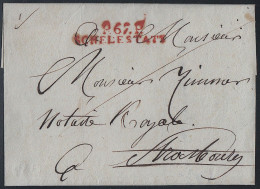 P.67.P.
SCHELESTATT
Monsieur
Monsieur Zimmer
Notaire Royale
a
Strasbourg